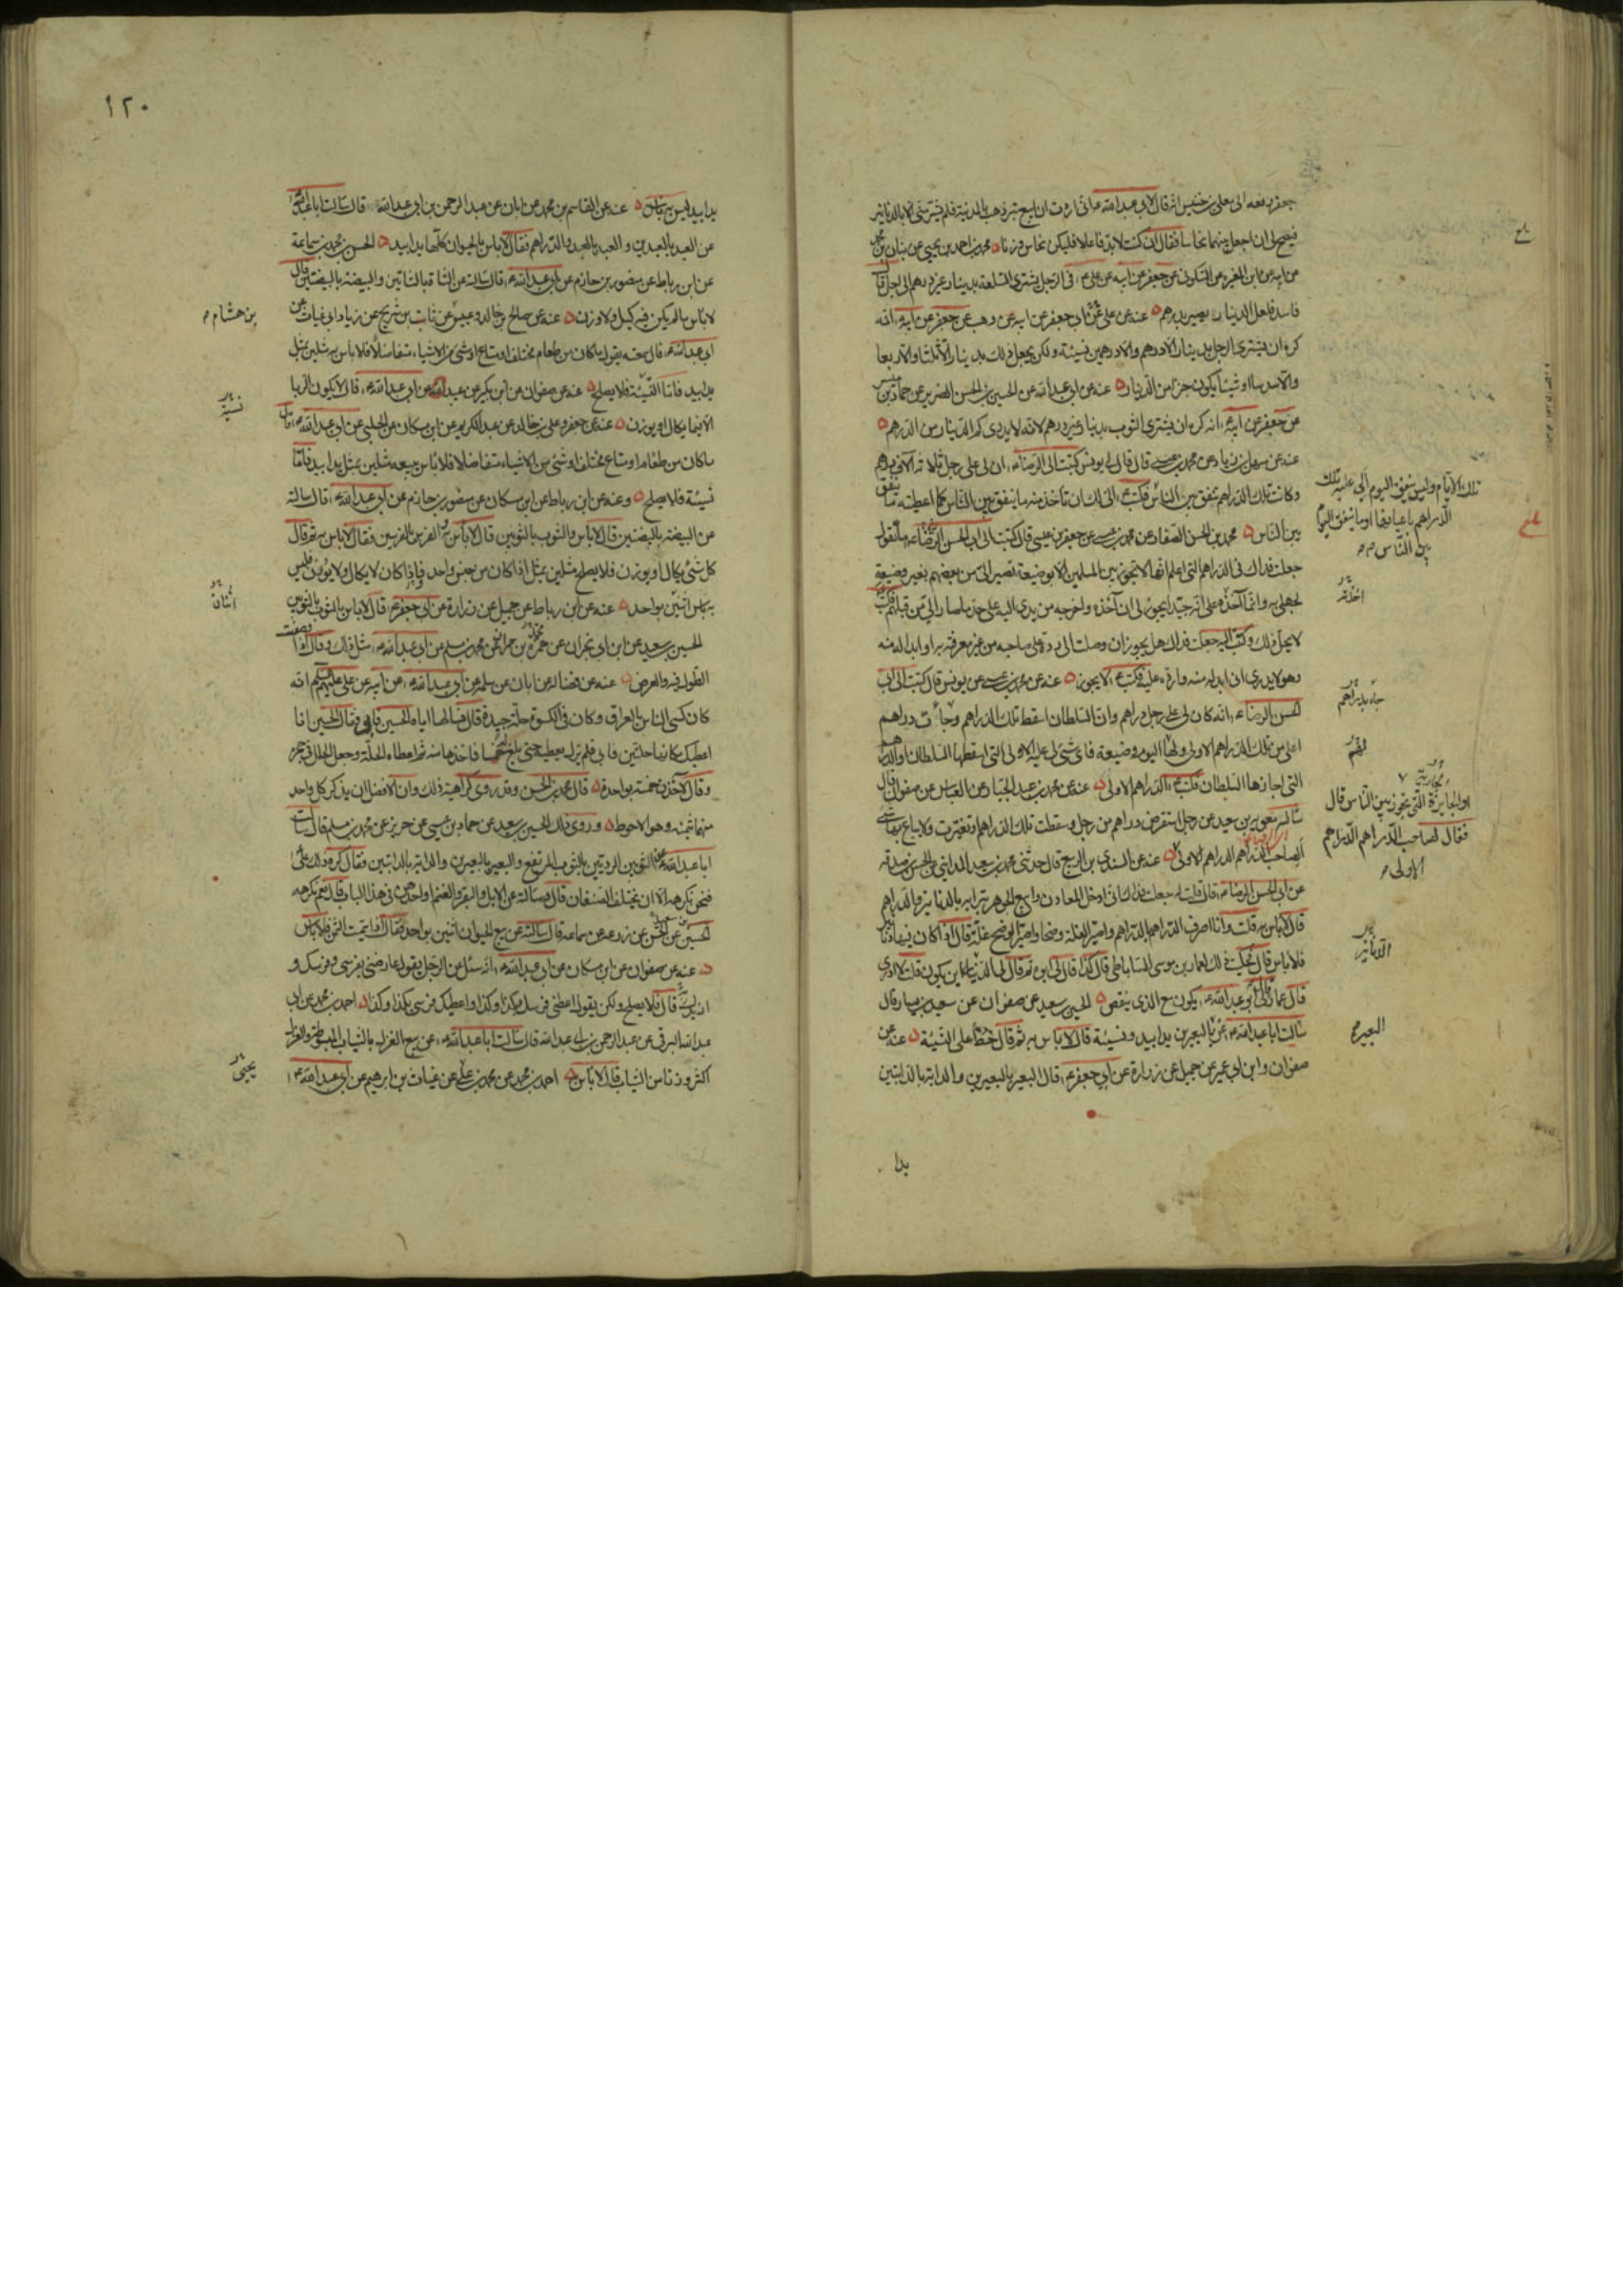 جعفر يدفعه الى معلى بن خنيس انه قال لابي عبد الله ع اني اردت ان ابيع تبر ذهب بالمدينة فلم يشتر مني الا بالدنانير
فيصح لي ان اجعل بينهما نحاسا فقال ان كنت لابد فاعلا فليكن نحاس وزنا محمد بن احمد بن يحيى عن بنان بن محمد
عن ابيه عن ابن المغيرة عن السكوني عن جعفر عن ابيه عن علي ع في الرجل يشتري السلعة بدينار غير درهم الى اجل قال
فاسد فلعل الدينار يصير بدرهم عنه عن علي عن ابي جعفر عن ابيه عن وهب عن جعفر عن ابيه ع انه
كره ان يشتري الرجل بدينار الا درهم والا درهمين نسيئة ولكن يجعل ذلك بدينار الا ثلثا والا ربعا
والا سدسا او شيئا يكون جزءا من الدينار عنه عن ابي عبد الله عن الحسين بن الحسن الضرير عن حماد بن ميسر
عن جعفر عن ابيه ع انه كره ان يشتري الثوب بدينار غير درهم لانه لا يدري كم الدينار من الدرهم
عنه عن سهل بن زياد عن محمد بن عيسى قال قال لي يونس كتبت الى الرضا ع ان لي على رجل ثلاثة آلاف درهم
وكانت تلك الدراهم تنفق بين الناس فكتب ع الي لك ان تاخذ منه ما ينفق بين الناس كما اعطيته ما ينفق
بين الناس محمد بن الحسن الصفار عن محمد بن عيسى عن جعفر بن عيسى قال كتبت الى ابي الحسن الرضا ع ما تقول
جعلت فداك في الدراهم التي اعلم انها لا تجوز بين المسلمين الا بوضيعة تصير الي من بعضهم بغير وضيعة
لجهلي به وانما آخذه على انه جيد ايجوز لي ان آخذه واخرجه من يدي اليه على حد ما صار الي من قبلهم فكتب
لا يحل ذلك وكتبت اليه جعلت فداك هل يجوز ان وصلت الي رده على صاحبه من غير معرفته به او ابداله منه
وهو لا يدري اني ابدله منه وارده عليه فكتب ع لا يجوز عنه عن محمد بن عيسى عن يونس قال كتبت الى ابي
الحسن الرضا ع انه كان لي على رجل دراهم وان السلطان اسقط تلك الدراهم وجاءت دراهم
اعلى من تلك الدراهم الاولى ولها اليوم وضيعة فاي شيء لي عليه الاولى التي اسقطها السلطان او الدراهم
التي اجازها السلطان فكتب ع الدراهم الاولى عنه عن محمد بن عبد الجبار عن العباس عن صفوان قال
ساله معوية بن سعيد عن رجل استقرض دراهم من رجل وسقطت تلك الدراهم او تغيرت ولا يباع بها شيء
الصاحب الدراهم الدراهم الاولى عنه عن السندي بن الربيع قال حدثني محمد بن سعيد المدايني عن الحسن بن صدقة
عن ابي الحسن الرضا ع قال قلت له جعلت فداك اني ادخل المعادن وابيع الجوهر بترابه بالدنانير والدراهم
قال لا باس به قلت وانا اصرف الدراهم بالدراهم واصير الغلة وضحا واصير الوضح غلة قال اذا كان فيها دنانير
فلا باس قال فحكيت ذلك لعمار بن موسى الساباطي قال كذا قال لي ابوه ثم قال لي الدنانير اين يكون قلت لا ادري
قال عمار قال لي ابو عبد الله ع يكون مع الذي ينقص الحسين بن سعيد عن صفوان عن سعيد بن يسار قال
سالت ابا عبد الله ع عن البعيرين يدا بيد ونسيئة قال لا باس به ثم قال خط على النسيئة عنه عن
صفوان وابن ابي عمير عن جميل عن زرارة عن ابي جعفر ع قال البعير بالبعيرين والدابة بالدابتين
يدا
تلك الايام وليس ينفق اليوم الي عليه تلك
الدراهم باعيانها او ما ينفق اليوم
بين الناس
اخذته
جاء بدراهم
لهم
تجارية
او الجايزة التي تجوز بين الناس قال
فقال لصاحب الدراهم الدراهم
الاولى
الدنانير
البعير
١٢٠
يدا بيد ليس به باس عنه عن القاسم بن محمد عن ابان عن عبد الرحمن بن ابي عبد الله قال سالت ابا عبد الله ع
عن العبد بالعبدين والعبد بالعبد والدراهم فقال لا باس بالحيوان كلها يدا بيد الحسن بن محمد بن سماعة
عن ابن رباط عن منصور بن حازم عن ابي عبد الله ع قال سالته عن الشاة بالشاتين والبيضة بالبيضتين قال
لا باس ما لم يكن فيه كيل ولا وزن عنه عن صالح بن خالد وعبيس عن ثابت بن شريح عن زياد ابي غياث عن
ابي عبد الله ع قال سمعته يقول ما كان من طعام مختلف او متاع او شيء من الاشياء متفاضلا فلا باس به مثلين بمثل
يدا بيد فاما النسيئة فلا يصلح عنه عن صفوان عن ابن بكير عن عبيد الله عن ابي عبد الله ع قال لا يكون الربا
الا فيما يكال او يوزن عنه عن جعفر وعلي بن خالد عن عبد الكريم عن ابن مسكان عن الحلبي عن ابي عبد الله ع قال
ما كان من طعام او متاع مختلف او شيء من الاشياء متفاضلا فلا باس ببيعه مثلين بمثل يدا بيد فاما
نسيئة فلا يصلح وعنه عن ابن رباط عن ابن مسكان عن منصور بن حازم عن ابي عبد الله ع قال سالته
عن البيضة بالبيضتين قال لا باس والثوب بالثوبين قال لا باس به والفرس بالفرسين فقال لا باس به ثم قال
كل شيء يكال او يوزن فلا يصلح مثلين بمثل اذا كان من جنس واحد فاذا كان لا يكال ولا يوزن فليس
به باس اثنين بواحد عنه عن ابن رباط عن جميل عن زرارة عن ابي جعفر ع قال لا باس بالثوب بالثوبين
الحسين بن سعيد عن ابن ابي نجران عن محمد بن حمران عن محمد بن مسلم عن ابي عبد الله ع مثل ذلك وقال اذا وصفت
الطول فيه والعرض عنه عن فضالة عن ابان عن سلمة عن ابي عبد الله ع عن ابيه عن علي عليهم السلم انه
كان كسى الناس بالعراق وكان في الكسوة حلة جيدة قال فسالها اياه الحسين فابى فقال الحسين انا
اعطيك مكانها حلتين فابى فلم يزل يعطيه حتى بلغ خمسا فاخذها منه ثم اعطاه الحلة وجعل الحلل في حجره
وقال لآخذن خمسة بواحدة قال محمد بن الحسن وقد روي كراهية ذلك وان الافضل ان يذكر كل واحد
منهما ثمنه وهو الاحوط وروى ذلك الحسين بن سعيد عن حماد بن عيسى عن حريز عن محمد بن مسلم قال سالت
ابا عبد الله ع عن الثوبين الرديين بالثوب المرتفع والبعير بالبعيرين والدابة بالدابتين فقال كره ذلك علي
فنحن نكرهه الا ان يختلف الصنفان قال وسالته عن الابل والبقر والغنم او احدهن في هذا الباب قال نعم نكرهه
الحسين بن سعيد عن الحسن عن زرعة عن سماعة قال سالته عن بيع الحيوان اثنين بواحد فقال اذا سميت الثمن فلا باس
عنه عن صفوان عن ابن مسكان عن ابي عبد الله ع انه سئل عن الرجل يقول عاوضني بفرسي وفرسك و
ازيدك قال فلا يصلح ولكن يقول اعطني فرسك بكذا وكذا واعطيك فرسي بكذا وكذا احمد بن محمد عن ابي
عبد الله البرقي عن عبد الرحمن بن ابي عبد الله قال سالت ابا عبد الله ع عن بيع الغزل بالثياب المبسوطة والغزل
اكثر وزنا من الثياب قال لا باس احمد بن محمد عن محمد بن علي عن غياث بن ابرهيم عن ابي عبد الله ع
بن هشام
نسية
اثنان
يحيى